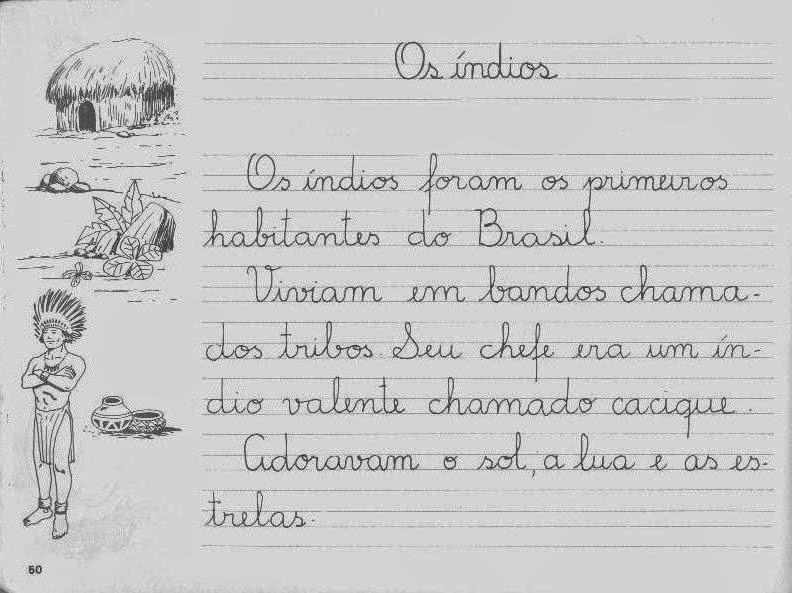 Os índios
Os índios foram os primeiros
habitantes do Brasil.
Viviam em bandos chama-
dos tribos. Seu chefe era um ín-
dio valente chamado cacique.
Adoravam o sol, a lua e as es-
trelas.
50